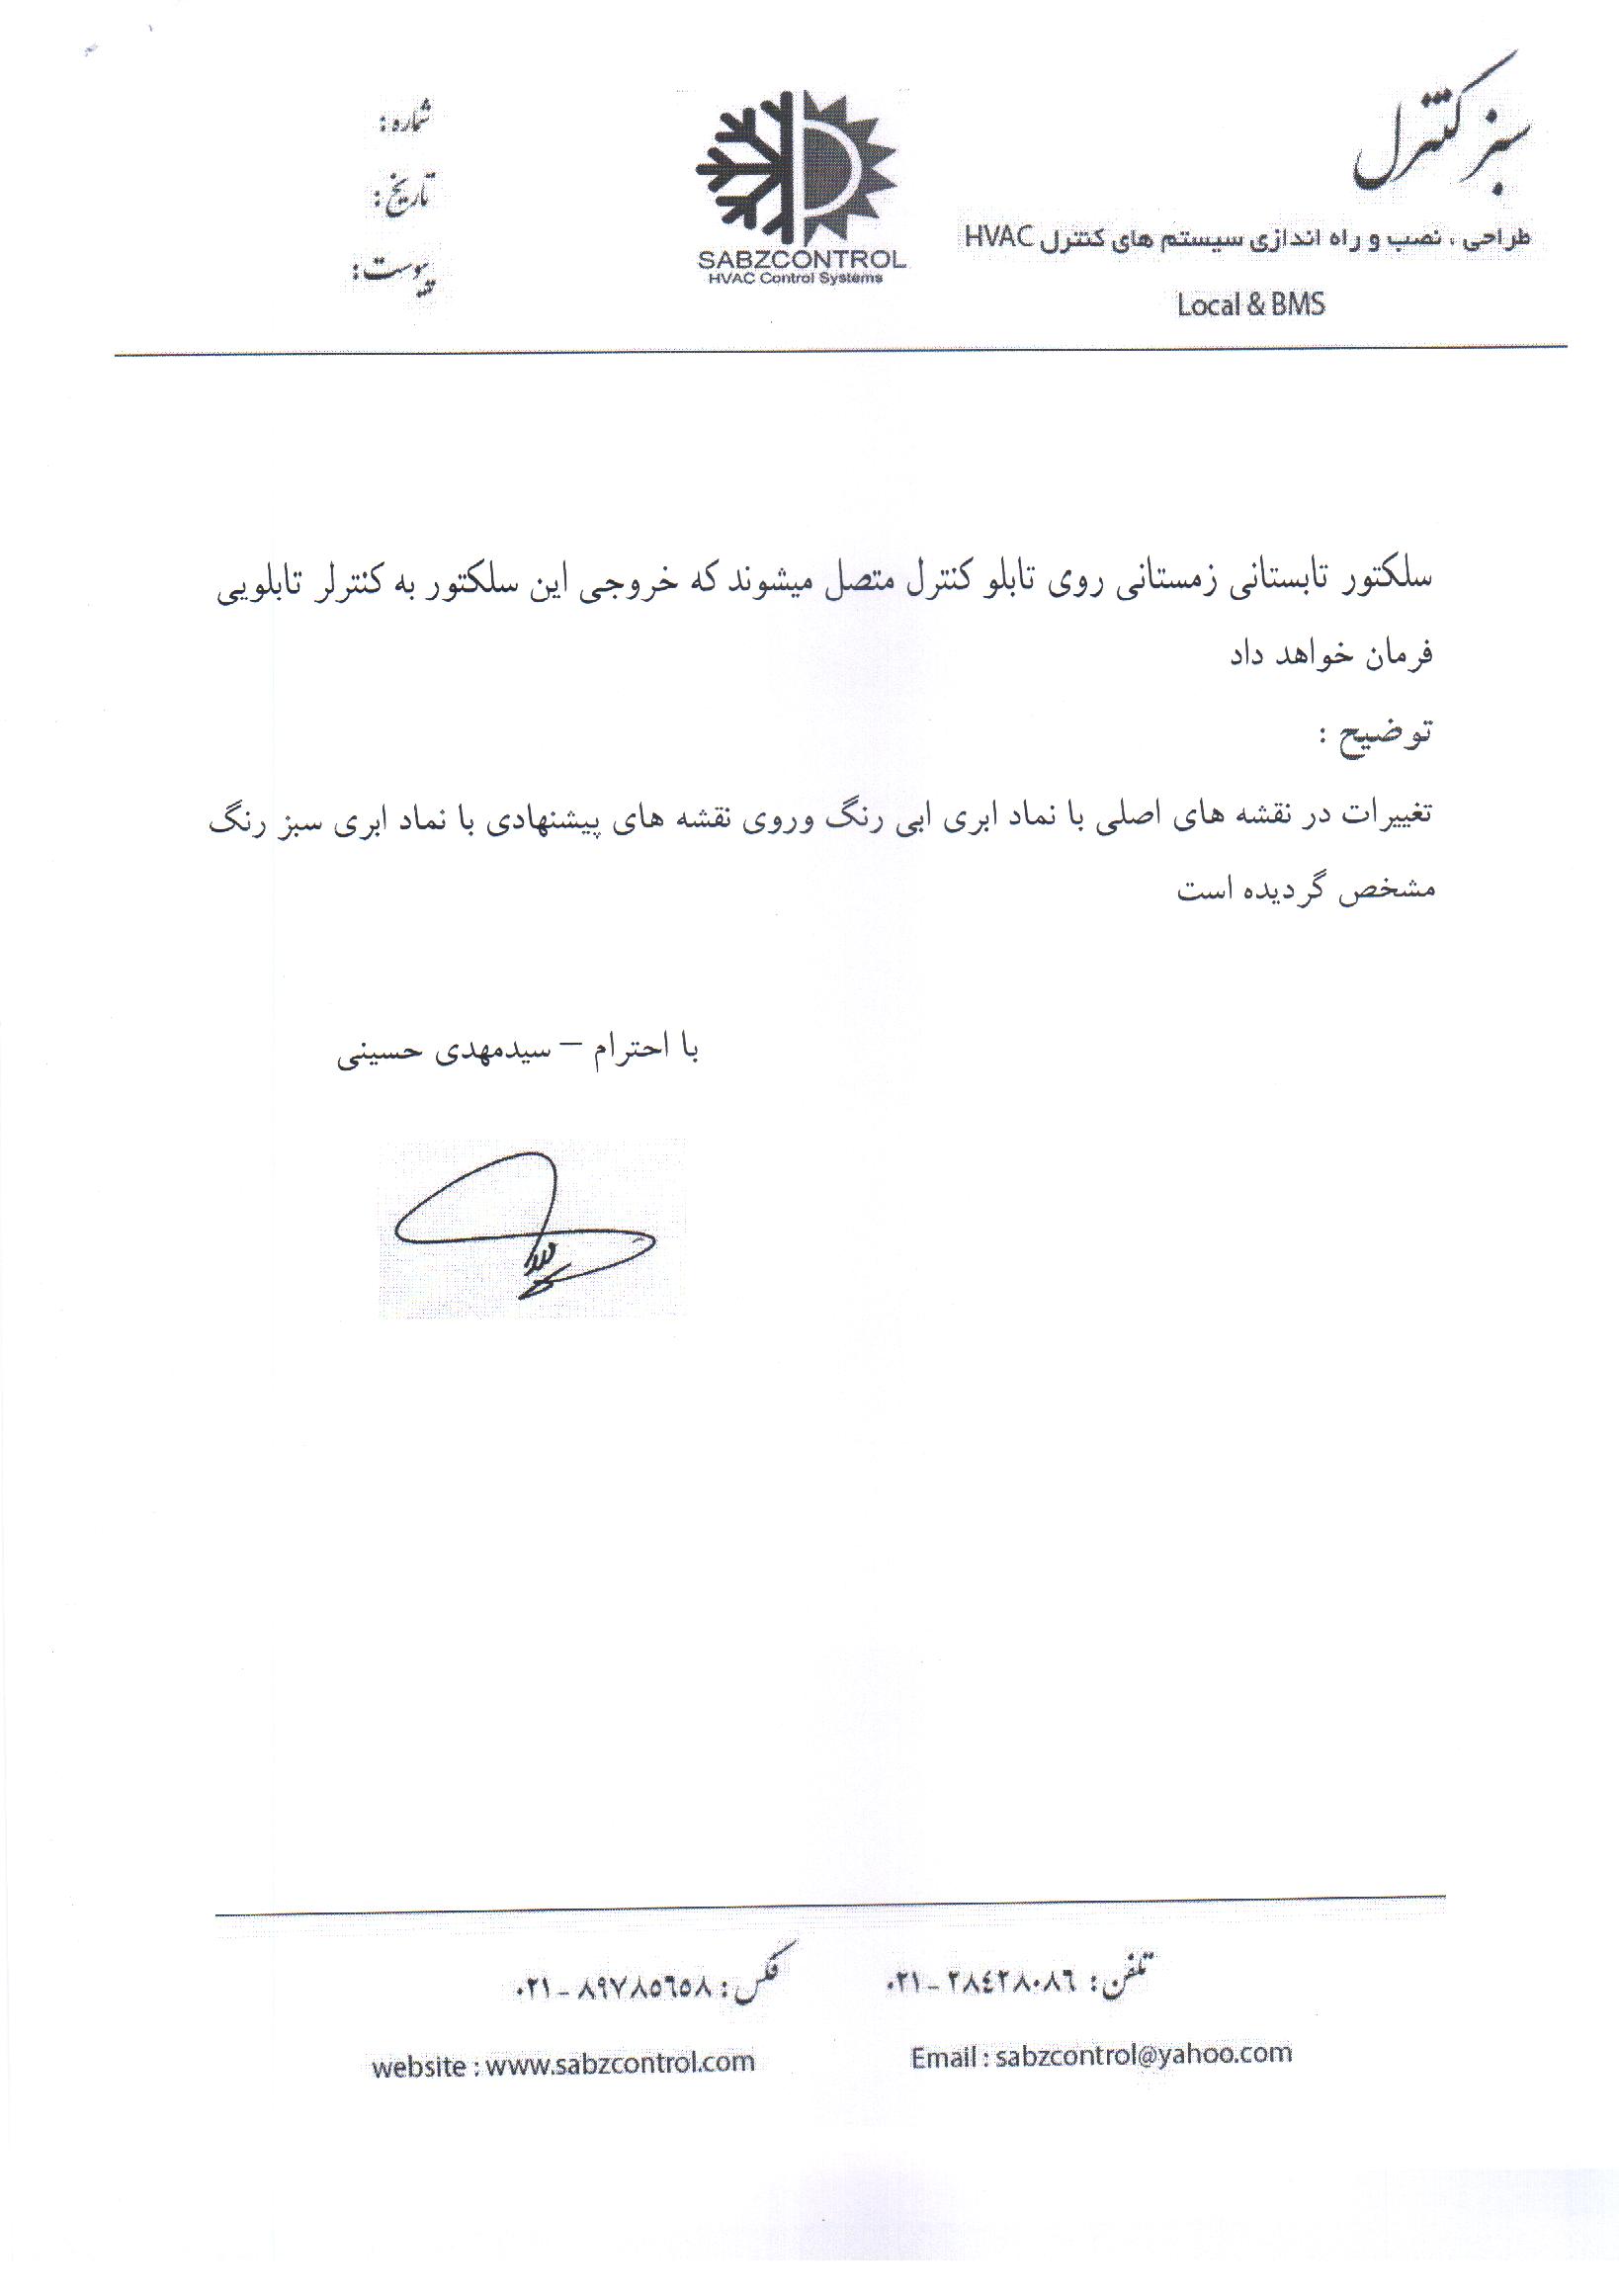 سبز کنترل
طراحی ، نصب و راه اندازی سیستم های کنترل HVAC
Local & BMS
SABZCONTROL
HVAC Control Systems
شماره :
تاریخ :
پیوست:
سلکتور تابستانی زمستانی روی تابلو کنترل متصل میشوند که خروجی این سلکتور به کنترلر تابلویی
فرمان خواهد داد
توضیح :
تغییرات در نقشه های اصلی با نماد ابری ابی رنگ وروی نقشه های پیشنهادی با نماد ابری سبز رنگ
مشخص گردیده است
با احترام – سیدمهدی حسینی
تلفن : ۰۲۱-۲۸٤۲۸۰۸٦
فکس : ۰۲۱-۸۹۷۸۵٦۵۸
Email : sabzcontrol@yahoo.com
website : www.sabzcontrol.com